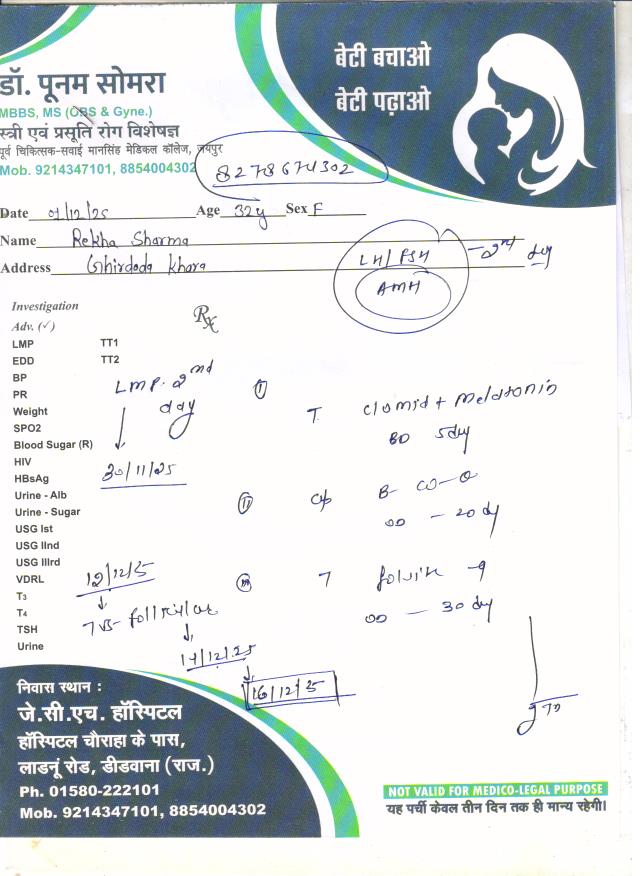 डॉ. पूनम सोमरा
MBBS, MS (OBS & Gyne.)
स्त्री एवं प्रसूति रोग विशेषज्ञ
पूर्व चिकित्सक-सवाई मानसिंह मेडिकल कॉलेज, जयपुर
Mob. 9214347101, 8854004302
बेटी बचाओ
बेटी पढ़ाओ
8278674302
Date 01/12/25 Age 32y Sex F
Name Rekha Sharma
Address Khara
LH/FSH - 2nd day
AMH
Investigation
Rx
Adv. (✓)
LMP TT1
EDD TT2
BP
PR
Weight
SPO2
Blood Sugar (R)
HIV
HBsAg
Urine - Alb
Urine - Sugar
USG Ist
USG IInd
USG IIIrd
VDRL
T3
T4
TSH
Urine
LMP. 2nd
day
30/11/25
12/12/25
TVS- follicular
14/12/25
16/12/25
(I) T. Clomid + Melatonin
BD 5 day
(II) Cap B- CO-Q
OD - 20 dy
(III) T
OD - 30 dy
निवास स्थान :
जे.सी.एच. हॉस्पिटल
हॉस्पिटल चौराहा के पास,
लाडनूं रोड, डीडवाना (राज.)
Ph. 01580-222101
Mob. 9214347101, 8854004302
NOT VALID FOR MEDICO-LEGAL PURPOSE
यह पर्ची केवल तीन दिन तक ही मान्य रहेगी।